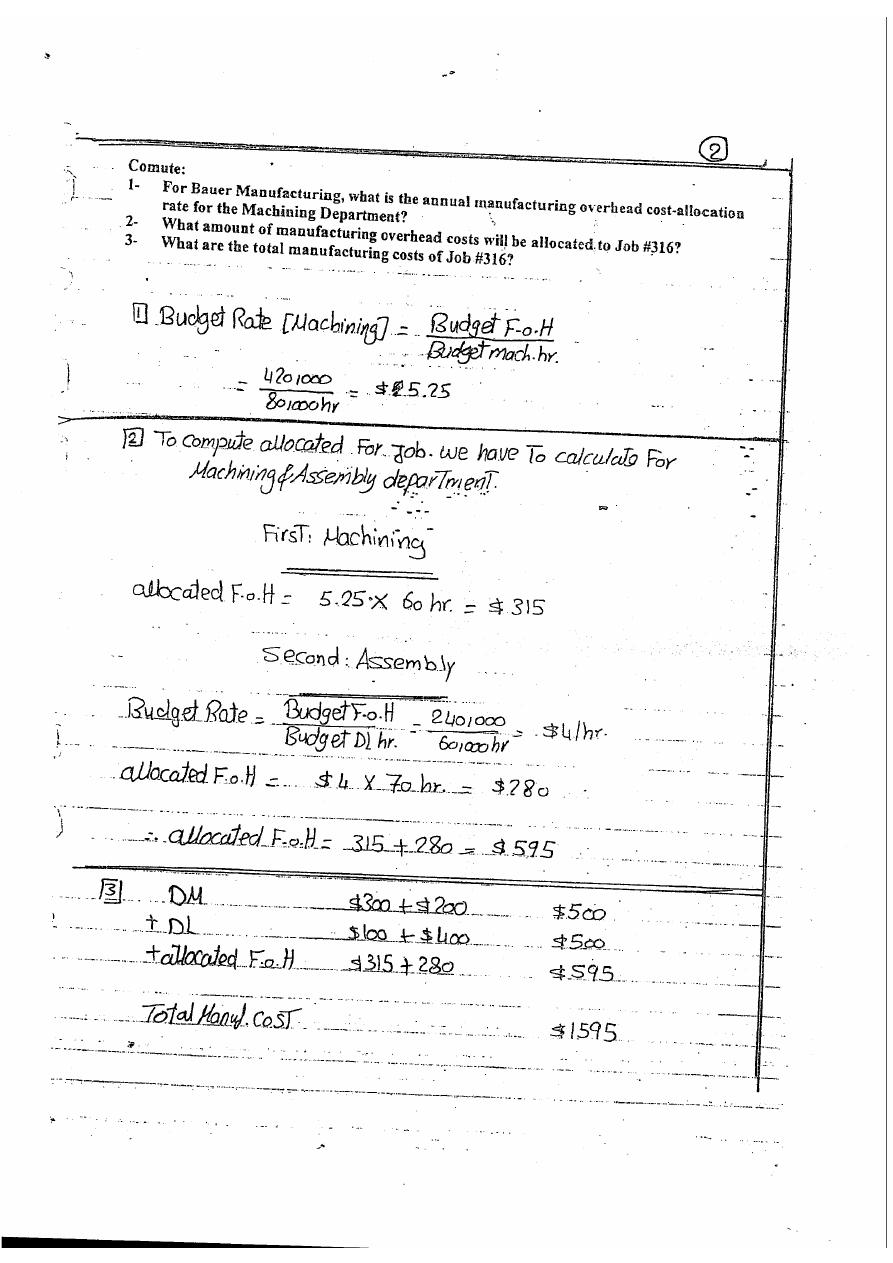 2
Comute:
1- For Bauer Manufacturing, what is the annual manufacturing overhead cost-allocation
rate for the Machining Department?
2- What amount of manufacturing overhead costs will be allocated to Job #316?
3- What are the total manufacturing costs of Job #316?
1 Budget Rate [Machining] = Budget F.o.H
Budget mach.hr.
= 420,000 / 80,000hr = $5.25
2 To compute allocated For Job. we have To calculate For
Machining & Assembly deparTment.
FirsT: Machining
allocated F.o.H = 5.25 X 60 hr. = $315
Second: Assembly
Budget Rate = Budget F.o.H / Budget Dl hr. = 240,000 / 60,000hr = $4/hr.
allocated F.o.H = $4 X 70 hr. = $280
∴ allocated F.o.H = 315 + 280 = $595
3 DM $300 + $200 $500
+ DL $100 + $400 $500
+ allocated F.o.H $315 + 280 $595
Total Manuf. CosT $1595